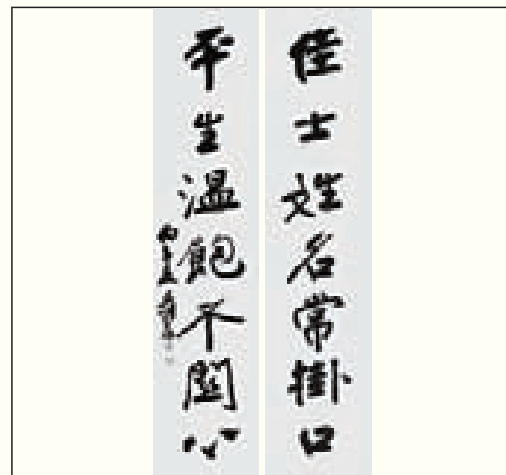 佳士姓名常掛口
平生溫飽不關心